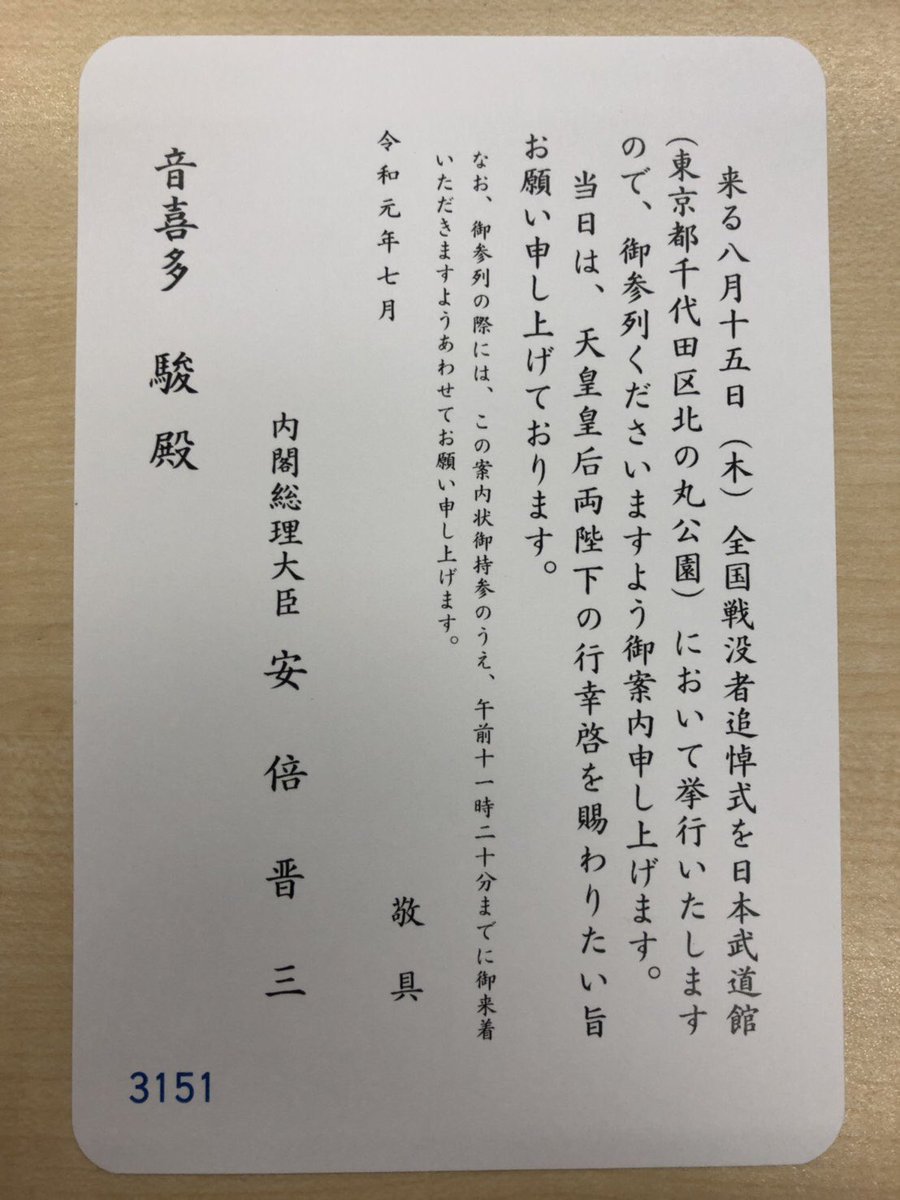 来る八月十五日（木）全国戦没者追悼式を日本武道館
（東京都千代田区北の丸公園）において挙行いたします
ので、御参列くださいますよう御案内申し上げます。
当日は、天皇皇后両陛下の行幸啓を賜わりたい旨
お願い申し上げております。
なお、御参列の際には、この案内状御持参のうえ、午前十一時二十分までに御来着
いただきますようあわせてお願い申し上げます。
敬具
令和元年七月
内閣総理大臣 安倍晋三
音喜多 駿殿
3151